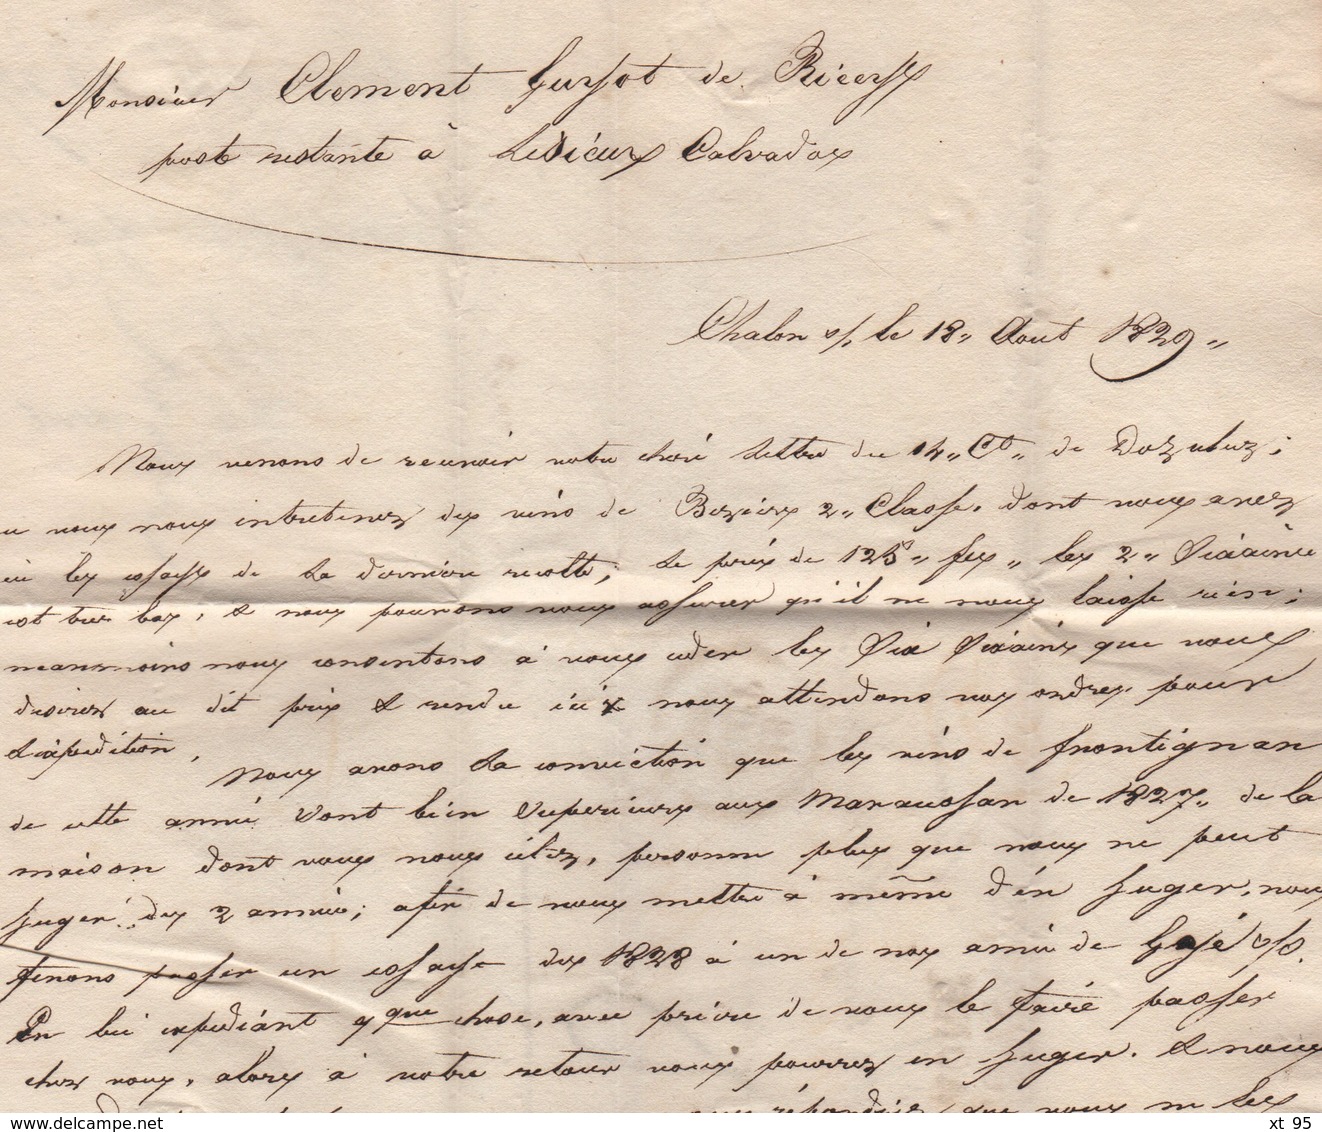 Monsieur Clement Guyot de Riceys
poste restante à Lesieux Calvados
Chalon s/ le 18 " Aout 1829 "
Nous venons de recevoir votre chère lettre du 14 " Ct " de Dozulez ;
vous nous entretenez des vins de Beziers 2 " Classe, dont vous avez
ici les essays de la derniere recolte ; le prix de 125 " frs " les 2 " Sixains
est tres bas, & nous pouvons vous assurer qu'il ne nous laisse rien ;
neansmoins nous consentons à vous ceder les Six Sixains que vous
desirez au dit prix & rendu ici & nous attendons vos ordres pour
l'expedition,
Nous avons la conviction que les vins de frontignan
de cette année sont bien superieurs aux Maraussan de 1827 " de la
maison dont vous nous citez, personne plus que nous ne peut
juger des 2 années ; afin de vous mettre à même d'en juger, nous
ferons passer un essaye des 1828 à un de nos amis de
En lui expediant qque chose, avec prière de vous le faire passer
chez vous, alors à votre retour vous pourrez en juger. & nous
que nous ne les
delcampe.net
xt 95